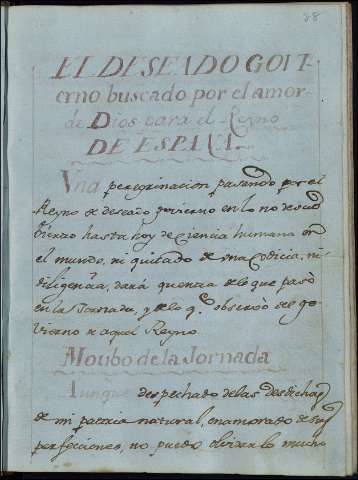 28
EL DESEADO GOVI
erno buscado por el amor
de Dios para el Reyno
DE ESPAÑA.
Vna peregrinacion pasando por el
Reyno de deseado govierno en lo no descu
bierto hasta hoy de Ciencia humana en
el mundo, ni quitado de una Codicia, ni
diligencia, dará quenta de lo que pasó
en la Jornada, y de lo q.e observó del go-
vierno de aquel Reyno.
Motibo de la Jornada
Aunque despechado de las desdichas
de mi patria natural, enamorado de sus
perfecciones, no puedo olvidar lo mucho